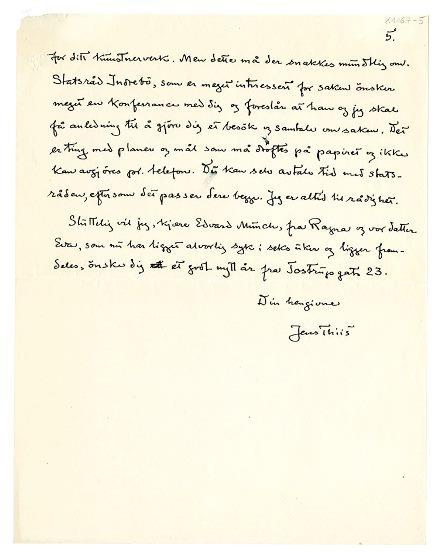 K 1167-5
5.
for ditt kunstnerverk. Men dette må der snakkes mundtlig om.
Statsråd Indrebö, som er meget intressert for saken ønsker
meget en konferrance med dig og foreslår at han og jeg skal
få anledning til å gjöre dig et besök og samtale om saken. Det
er ting med planer og mål som må dröftes på papiret og ikke
kan avgjöres pr. telefon. Du kan selv avtale tid med stats-
råden, eftersom det passer dere begge. Jeg er altid til rådighet.
Sluttelig vil jeg, kjære Edvard Munch, fra Ragna og vor datter
Eva, som nu har ligget alvorlig syk i seks uker og ligger frem-
deles, önske dig et godt nytt år fra Tostrupsgate 23.
Din hengivne
Jens Thiis